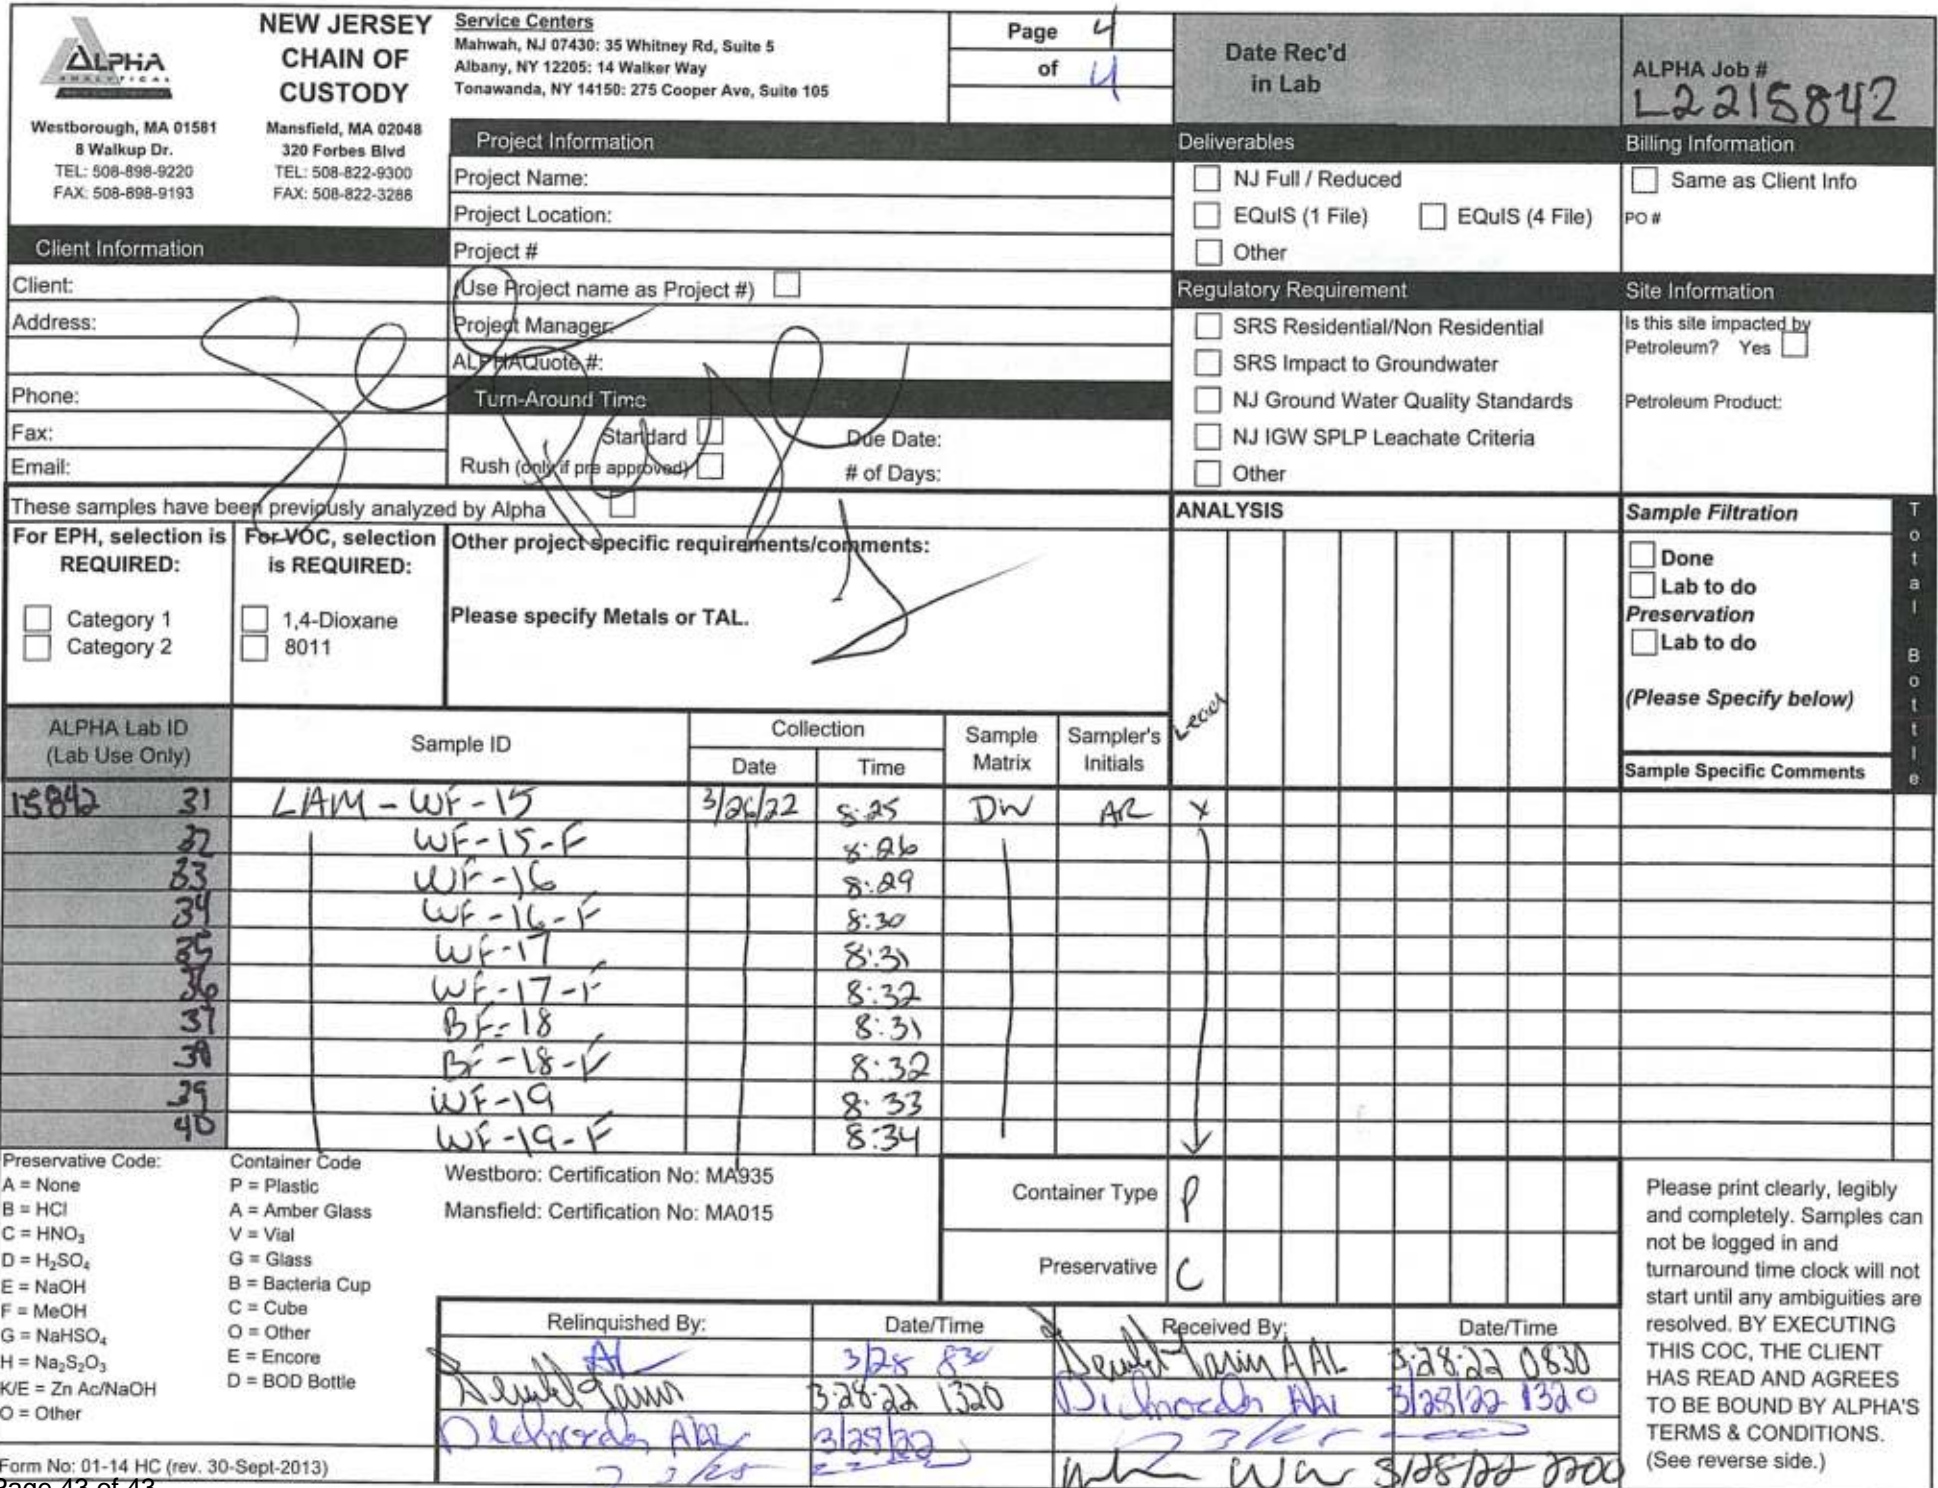 ALPHA
ANALYTICAL
NEW JERSEY
CHAIN OF
CUSTODY
Westborough, MA 01581
8 Walkup Dr.
TEL: 508-898-9220
FAX: 508-898-9193
Mansfield, MA 02048
320 Forbes Blvd
TEL: 508-822-9300
FAX: 508-822-3288
Service Centers
Mahwah, NJ 07430: 35 Whitney Rd, Suite 5
Albany, NY 12205: 14 Walker Way
Tonawanda, NY 14150: 275 Cooper Ave, Suite 105
Page 4
of 4
Date Rec'd
in Lab
ALPHA Job #
L2215842
Client Information
Client:
Address:
Phone:
Fax:
Email:
Project Information
Project Name:
Project Location:
Project #
(Use Project name as Project #)
Project Manager:
ALPHAQuote #:
Turn-Around Time
Standard
Due Date:
Rush (only if pre approved)
# of Days:
Deliverables
NJ Full / Reduced
EQuIS (1 File)
EQuIS (4 File)
Other
Billing Information
Same as Client Info
PO #
Regulatory Requirement
SRS Residential/Non Residential
SRS Impact to Groundwater
NJ Ground Water Quality Standards
NJ IGW SPLP Leachate Criteria
Other
Site Information
Is this site impacted by
Petroleum? Yes
Petroleum Product:
These samples have been previously analyzed by Alpha
For EPH, selection is
REQUIRED:
Category 1
Category 2
For VOC, selection
is REQUIRED:
1,4-Dioxane
8011
Other project specific requirements/comments:
Please specify Metals or TAL.
ANALYSIS
Lead
Sample Filtration
Done
Lab to do
Preservation
Lab to do
(Please Specify below)
Sample Specific Comments
Total Bottle
ALPHA Lab ID
(Lab Use Only)
Sample ID
Collection
Date
Time
Sample
Matrix
Sampler's
Initials
15842 31 LIAM - WF-15 3/26/22 8:25 DW AR X
32 WF-15-F 8:26
33 WF-16 8:29
34 WF-16-F 8:30
35 WF-17 8:31
36 WF-17-F 8:32
37 BF-18 8:31
38 BF-18-F 8:32
39 WF-19 8:33
40 WF-19-F 8:34
Preservative Code:
A = None
B = HCl
C = HNO₃
D = H₂SO₄
E = NaOH
F = MeOH
G = NaHSO₄
H = Na₂S₂O₃
K/E = Zn Ac/NaOH
O = Other
Container Code
P = Plastic
A = Amber Glass
V = Vial
G = Glass
B = Bacteria Cup
C = Cube
O = Other
E = Encore
D = BOD Bottle
Westboro: Certification No: MA935
Mansfield: Certification No: MA015
Container Type P
Preservative C
Relinquished By:
Date/Time
Received By:
Date/Time
3/28 830
AAL 3-28-22 0830
3-28-22 1320
AAL 3/28/22 1320
AAL 3/28/22
3/28/22 2200
Please print clearly, legibly
and completely. Samples can
not be logged in and
turnaround time clock will not
start until any ambiguities are
resolved. BY EXECUTING
THIS COC, THE CLIENT
HAS READ AND AGREES
TO BE BOUND BY ALPHA'S
TERMS & CONDITIONS.
(See reverse side.)
Form No: 01-14 HC (rev. 30-Sept-2013)
Page 43 of 43